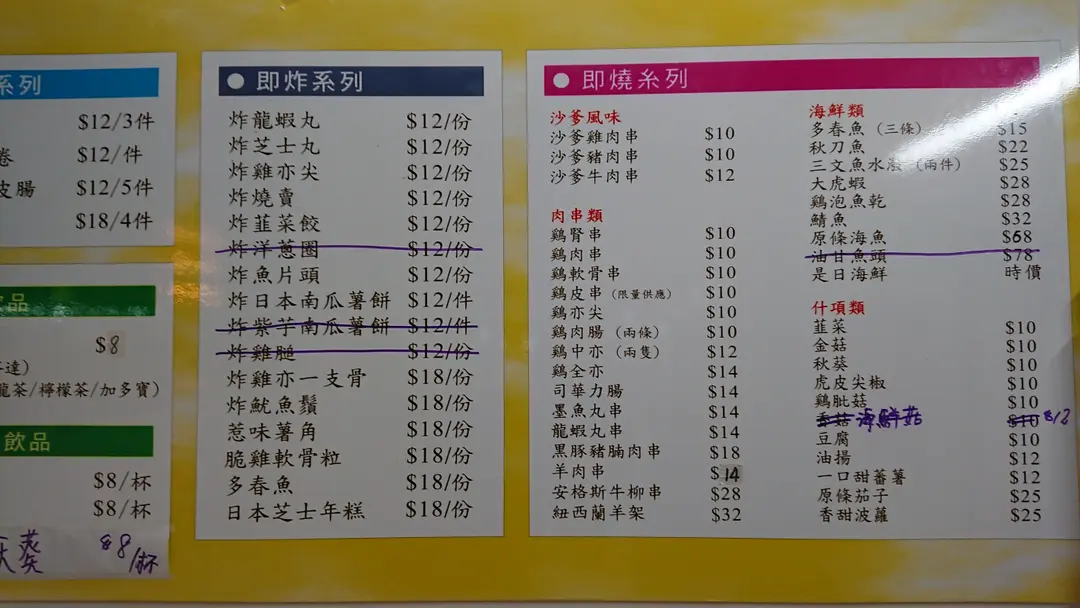 系列
$12/3件
捲 $12/件
皮腸 $12/5件
$18/4件
飲品
$8
達)
龍茶/檸檬茶/加多寶)
飲品
$8/杯
$8/杯
葵 $8/杯
● 即炸系列
炸龍蝦丸 $12/份
炸芝士丸 $12/份
炸雞亦尖 $12/份
炸燒賣 $12/份
炸韮菜餃 $12/份
炸洋蔥圈 $12/份
炸魚片頭 $12/份
炸日本南瓜薯餅 $12/件
炸紫芋南瓜薯餅 $12/件
炸雞膇 $12/份
炸雞亦一支骨 $18/份
炸魷魚鬚 $18/份
惹味薯角 $18/份
脆雞軟骨粒 $18/份
多春魚 $18/份
日本芝士年糕 $18/份
● 即燒糸列
沙爹風味
沙爹雞肉串 $10
沙爹豬肉串 $10
沙爹牛肉串 $12
肉串類
鷄腎串 $10
鷄肉串 $10
鷄軟骨串 $10
鷄皮串 (限量供應) $10
鷄亦尖 $10
鷄肉腸 (兩條) $10
鷄中亦 (兩隻) $12
鷄全亦 $14
司華力腸 $14
墨魚丸串 $14
龍蝦丸串 $14
黑豚豬腩肉串 $18
羊肉串 $14
安格斯牛柳串 $28
紐西蘭羊架 $32
海鮮類
多春魚 (三條) $15
秋刀魚 $22
三文魚水 (兩件) $25
大虎蝦 $28
鷄泡魚乾 $28
鯖魚 $32
原條海魚 $68
油甘魚頭 $78
是日海鮮 時價
什項類
韮菜 $10
金菇 $10
秋葵 $10
虎皮尖椒 $10
鷄肶菇 $10
香菇 海鮮菇 $10 $12
豆腐 $10
油揚 $12
一口甜蕃薯 $12
原條茄子 $25
香甜波蘿 $25